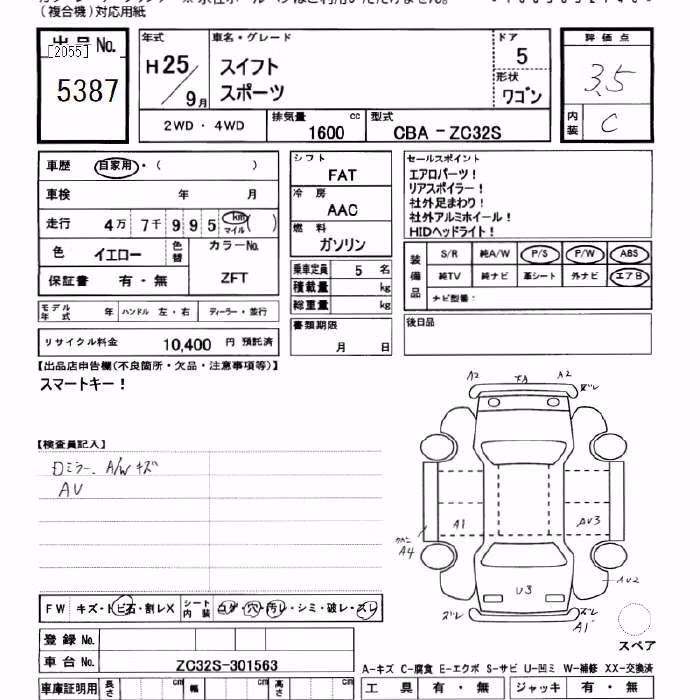 (複合機)対応用紙
出品 No.
[2055]
5387
年式
H25/9月
車名・グレード
スイフト
スポーツ
ドア
5
形状
ワゴン
評価点
3.5
内装
C
2WD・4WD
排気量 cc
1600
型式
CBA - ZC32S
車歴 自家用・( )
車検 年 月
走行 4万 7千 9 9 5 km マイル ( )
色 イエロー 色替
カラーNo.
ZFT
保証書 有・無
シフト
FAT
冷房
AAC
燃料
ガソリン
乗車定員 5 名
積載量 kg
総重量 kg
書類期限
月 日
セールスポイント
エアロパーツ!
リアスポイラー!
社外足まわり!
社外アルミホイール!
HIDヘッドライト!
装備品
S/R 純A/W P/S P/W ABS
純TV 純ナビ 革シート 外ナビ エアB
ナビ型番:
後日品
モデル年式 年 ハンドル 左・右 ディーラー・並行
リサイクル料金 10,400 円 預託済
【出品店申告欄(不良箇所・欠品・注意事項等)】
スマートキー!
【検査員記入】
ミラー、A/W キズ
AV
A2 A2
ズレ
A1
AV3
A4
U3
UV2
ズレ
ズレ
A1
スペア
FW キズ・トビ石・割レX
シート内装 コゲ・穴・汚レ・シミ・破レ・スレ
登録 No.
車台 No. ZC32S-301563
車庫証明用 長さ cm 幅 cm 高さ cm
A-キズ C-腐食 E-エクボ S-サビ U-凹ミ W-補修 XX-交換済
工具 有・無 ジャッキ 有・無